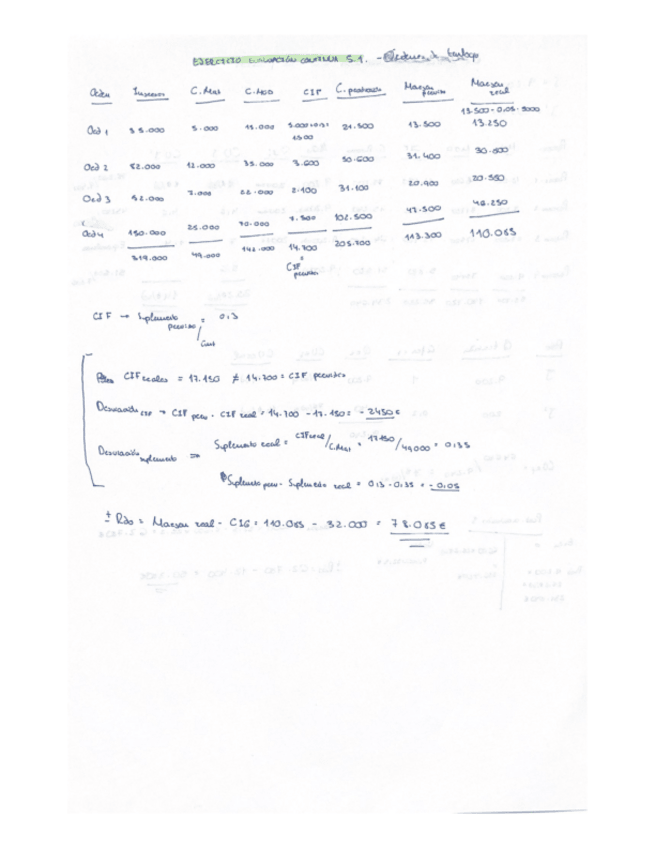 EJERCICIO EVALUACIÓN CONTINUA 5.1. -
Orden Ingresos C. Mat C. MOD CIF C. producción Margen previsto Margen real
13.500 - 0,05 · 5000
Ord 1 35.000 5.000 15.000 5.000 · 0,3 = 1500 21.500 13.500 13.250
Ord 2 82.000 12.000 35.000 3.600 50.600 31.400 30.800
Ord 3 52.000 7.000 22.000 2.100 31.100 20.900 20.550
Ord 4 150.000 25.000 70.000 7.500 102.500 47.500 46.250
319.000 49.000 142.000 14.700 205.700 113.300 110.085
CIF previsto
CIF → Suplemento previsto / Cmat = 0,3
CIF reales = 17.150 ≠ 14.700 = CIF previstos
Desviación CIF → CIF prev - CIF real = 14.700 - 17.150 = - 2450 €
Desviación suplemento ⇒ Suplemento real = CIF real / C.Mat = 17150 / 49000 = 0,35
Suplemento prev - Suplemento real = 0,3 - 0,35 = - 0,05
± Rdo = Margen real - CIG = 110.085 - 32.000 = 78.085 €